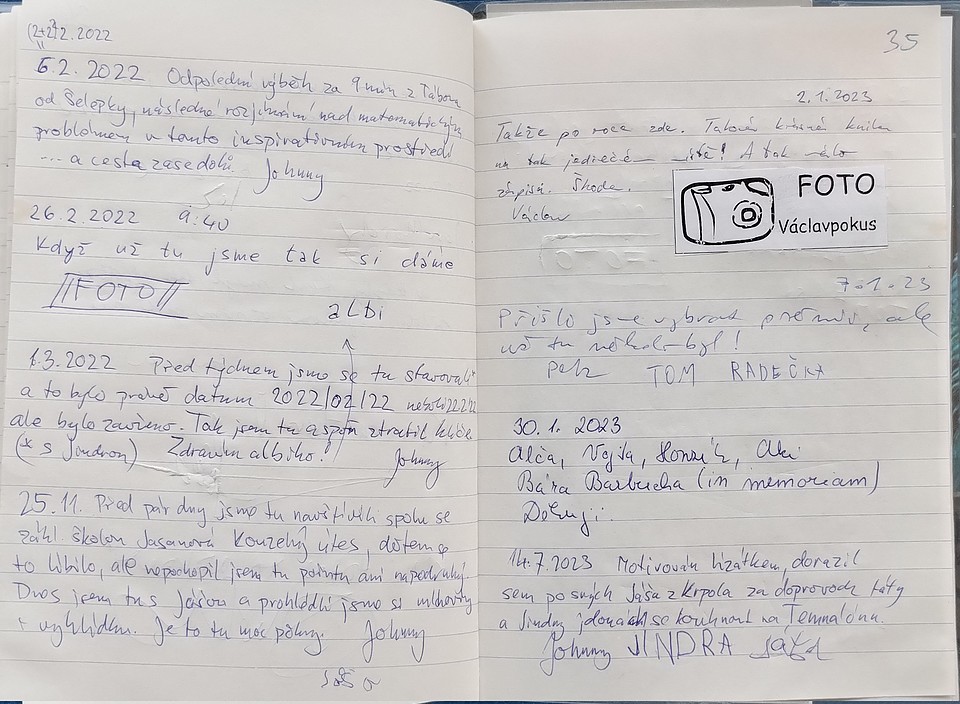 (2+2²+2.2022
6.2.2022 Odpolední výběh za 9 min z Tábora
od Šelepky, následné rozjímání nad matematickým
problémem v tomto inspirativním prostředí
... a cesta zase dolů. Johnny
26.2.2022 9:40
Když už tu jsme tak si dáme
//FOTO//
albi
1.3.2022 Před týdnem jsme se tu stavovali*
a to bylo právě datum 2022/02/22 neboli 22.2.22
ale bylo zavřeno. Tak jsem tu aspoň ztratil klíče.
(* s Jindrou) Zdravím albiho! Johnny
25.11. Před pár dny jsme tu navštívili spolu se
zákl. školou Jasanová Kouzelný útes, dětem se
to líbilo, ale nepochopil jsem tu pointu ani napodruhý.
Dnes jsem tu s Jášou a prohlédli jsme si
i vyhlídku. Je to tu moc pěkný. Johnny
35
2.1.2023
Takže po roce zde. Taková krásná kniha
na tak jedinečném místě! A tak málo
zápisů. Škoda.
Václav
FOTO
Václavpokus
7.1.23
Přišli jsme vybrat prémii, ale
už tu někdo byl!
Petr TOM RADEČKA
30.1.2023
Alča, Vojta, Honzík,
Bára Barbucha (in memoriam)
Děkuji.
14.7.2023 Motivován lízátkem, dorazil
sem po svých Jáša z Krpola za doprovodu táty
a Jindry, jdoucích se kouknout na Temnalónu.
Johnny JINDRA JÁŠA